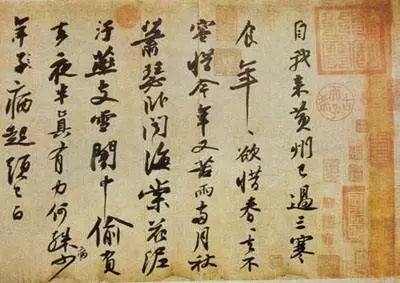 自我來黃州已過三寒
食年〻欲惜春〻去不
容惜今年又苦雨兩月秋
蕭瑟卧聞海棠花泥
汙燕支雪闇中偷負
去夜半真有力何殊少
病
年子病起頭已白